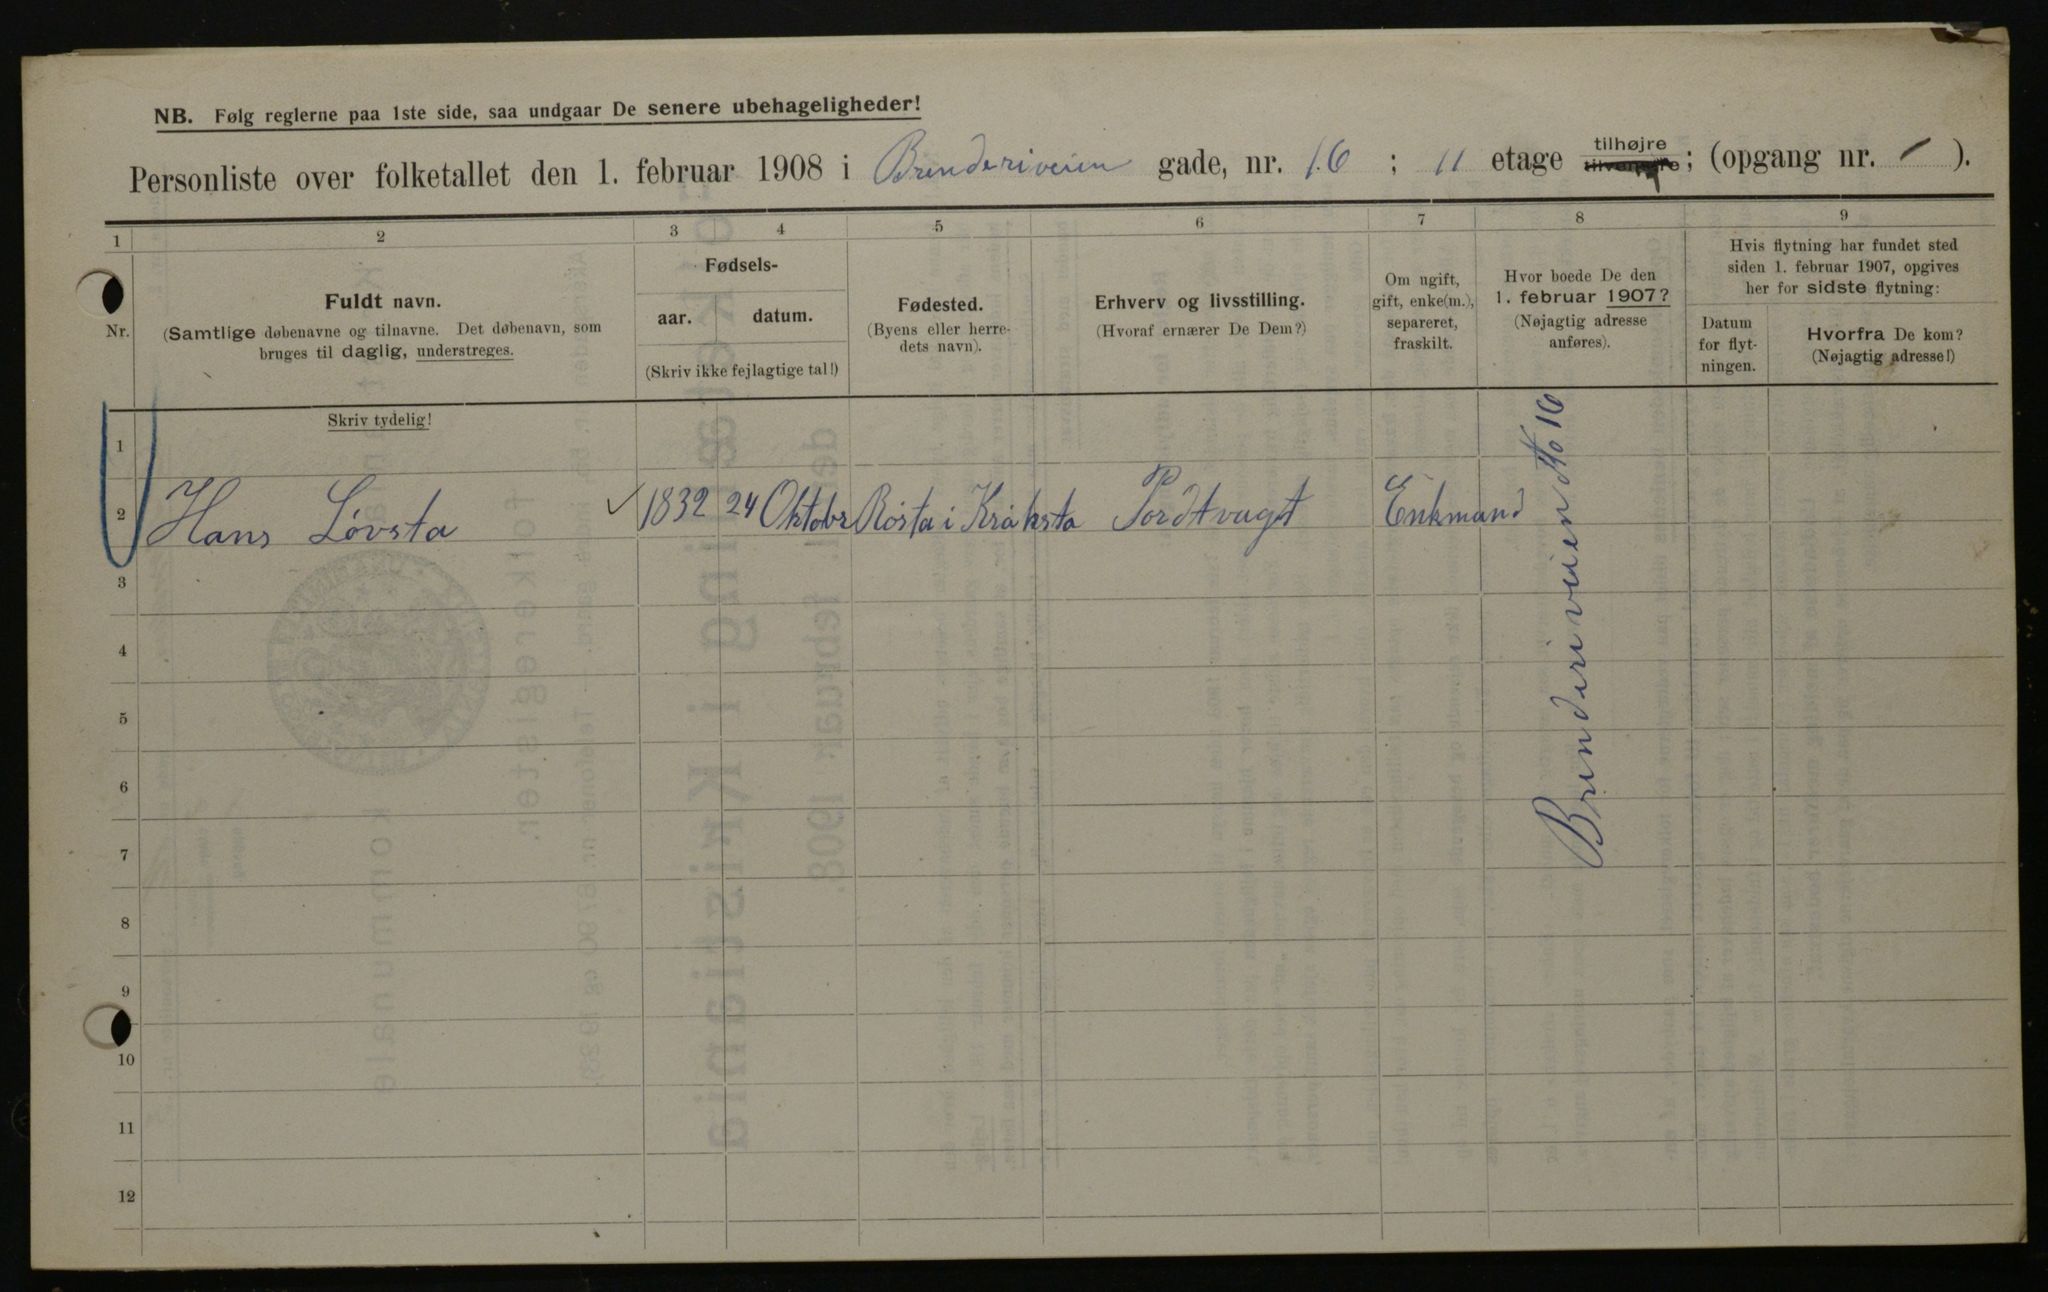 NB. Følg reglerne paa 1ste side, saa undgaar De senere ubehageligheder!
Personliste over folketallet den 1. februar 1908 i Brenderiveien gade, nr. 16; 11 etage tilhøjre tilvenstre; (opgang nr. – ).
1 2 3 4 5 6 7 8 9
Nr.
Fuldt navn.
(Samtlige døbenavne og tilnavne. Det døbenavn, som
bruges til daglig, understreges.
Fødsels-
aar. datum.
(Skriv ikke fejlagtige tal!)
Fødested.
(Byens eller herre-
dets navn).
Erhverv og livsstilling.
(Hvoraf ernærer De Dem?)
Om ugift,
gift, enke(m.),
separeret,
fraskilt.
Hvor boede De den
1. februar 1907?
(Nøjagtig adresse
anføres).
Hvis flytning har fundet sted
siden 1. februar 1907, opgives
her for sidste flytning:
Datum
for flyt-
ningen.
Hvorfra De kom?
(Nøjagtig adresse!)
Skriv tydelig!
1
2 Hans Lövsta 1832 24 Oktobr Rösta i Kråksta Pordtvagt Enkmand Brenderiveien No 16
3
4
5
6
7
8
9
10
11
12